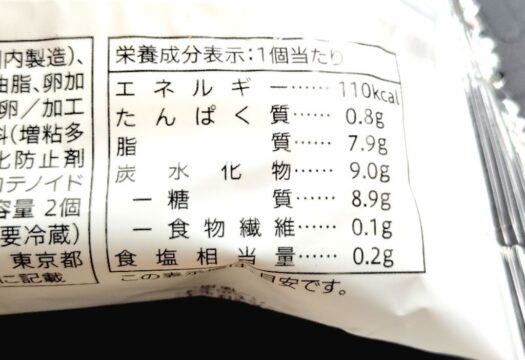 内製造)、
油脂、卵加
卵/加工
料(増粘多
化防止剤
カテノイド
容量 2個
要冷蔵)
東京都
に記載
栄養成分表示:1個当たり
エネルギー……110kcal
たんぱく質……0.8g
脂質……7.9g
炭水化物……9.0g
ー糖質……8.9g
ー食物繊維……0.1g
食塩相当量……0.2g
この表示値は目安です。